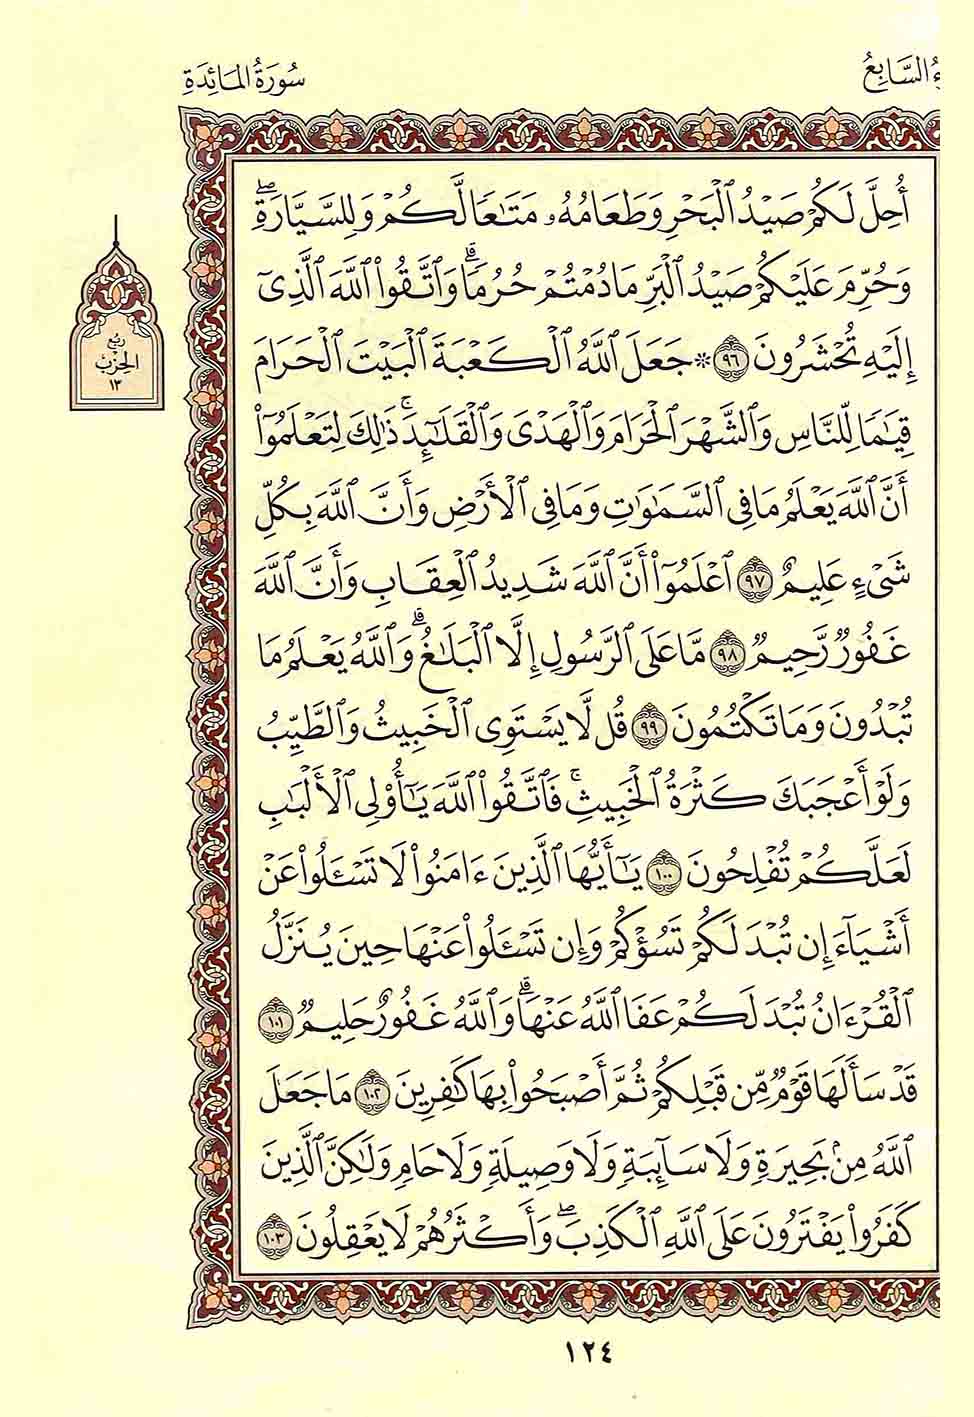 ءُ السَّابِعُ
سُورَةُ المَائِدَةِ
أُحِلَّ لَكُمۡ صَيۡدُ ٱلۡبَحۡرِ وَطَعَامُهُۥ مَتَٰعٗا لَّكُمۡ وَلِلسَّيَّارَةِۖ
وَحُرِّمَ عَلَيۡكُمۡ صَيۡدُ ٱلۡبَرِّ مَا دُمۡتُمۡ حُرُمٗاۗ وَٱتَّقُواْ ٱللَّهَ ٱلَّذِيٓ
إِلَيۡهِ تُحۡشَرُونَ ٩٦ ۞ جَعَلَ ٱللَّهُ ٱلۡكَعۡبَةَ ٱلۡبَيۡتَ ٱلۡحَرَامَ
قِيَٰمٗا لِّلنَّاسِ وَٱلشَّهۡرَ ٱلۡحَرَامَ وَٱلۡهَدۡيَ وَٱلۡقَلَٰٓئِدَۚ ذَٰلِكَ لِتَعۡلَمُوٓاْ
أَنَّ ٱللَّهَ يَعۡلَمُ مَا فِي ٱلسَّمَٰوَٰتِ وَمَا فِي ٱلۡأَرۡضِ وَأَنَّ ٱللَّهَ بِكُلِّ
شَيۡءٍ عَلِيمٌ ٩٧ ٱعۡلَمُوٓاْ أَنَّ ٱللَّهَ شَدِيدُ ٱلۡعِقَابِ وَأَنَّ ٱللَّهَ
غَفُورٞ رَّحِيمٞ ٩٨ مَّا عَلَى ٱلرَّسُولِ إِلَّا ٱلۡبَلَٰغُۗ وَٱللَّهُ يَعۡلَمُ مَا
تُبۡدُونَ وَمَا تَكۡتُمُونَ ٩٩ قُل لَّا يَسۡتَوِي ٱلۡخَبِيثُ وَٱلطَّيِّبُ
وَلَوۡ أَعۡجَبَكَ كَثۡرَةُ ٱلۡخَبِيثِۚ فَٱتَّقُواْ ٱللَّهَ يَٰٓأُوْلِي ٱلۡأَلۡبَٰبِ
لَعَلَّكُمۡ تُفۡلِحُونَ ١٠٠ يَٰٓأَيُّهَا ٱلَّذِينَ ءَامَنُواْ لَا تَسۡـَٔلُواْ عَنۡ
أَشۡيَآءَ إِن تُبۡدَ لَكُمۡ تَسُؤۡكُمۡ وَإِن تَسۡـَٔلُواْ عَنۡهَا حِينَ يُنَزَّلُ
ٱلۡقُرۡءَانُ تُبۡدَ لَكُمۡ عَفَا ٱللَّهُ عَنۡهَاۗ وَٱللَّهُ غَفُورٌ حَلِيمٞ ١٠١
قَدۡ سَأَلَهَا قَوۡمٞ مِّن قَبۡلِكُمۡ ثُمَّ أَصۡبَحُواْ بِهَا كَٰفِرِينَ ١٠٢ مَا جَعَلَ
ٱللَّهُ مِنۢ بَحِيرَةٖ وَلَا سَآئِبَةٖ وَلَا وَصِيلَةٖ وَلَا حَامٖ وَلَٰكِنَّ ٱلَّذِينَ
كَفَرُواْ يَفۡتَرُونَ عَلَى ٱللَّهِ ٱلۡكَذِبَۖ وَأَكۡثَرُهُمۡ لَا يَعۡقِلُونَ ١٠٣
رُبُع
الحِزْبِ
١٣
١٢٤